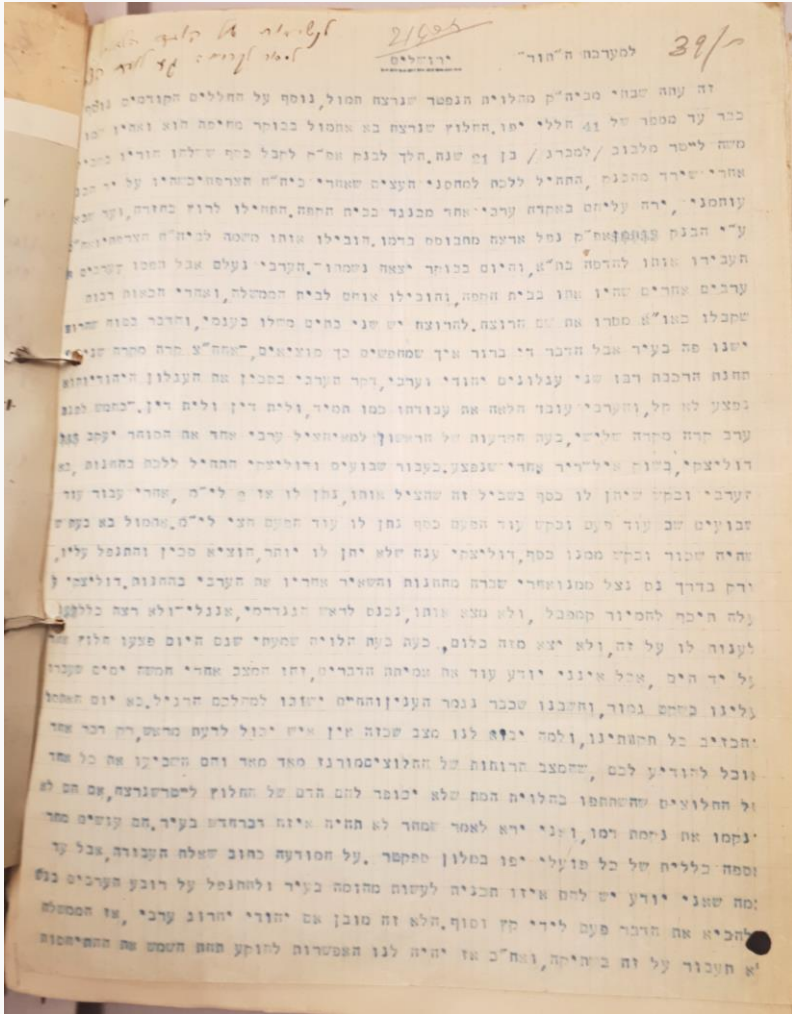 לנשיאות של הועד הלאומי
39/ח
למערכת ה"תור"
ירושלים
זה עתה שבתי מביה"ק מהלוית הנפטר שנרצח תמול, נוסף על החללים הקודמים נוסף
כבר עד מספר של 41 חללי יפו. החלוץ שנרצח בא אתמול בבוקר מחיפה הוא ואחיו
משה לייסר מלבוב /למברג/ בן 21 שנה. הלך לבנק אפ"ק לקבל כסף ששלחו הוריו
אחרי שירד מהבנק, התחיל ללכת למחסני העצים שאחרי ביה"ח הצרפתי כשהיו על יד הבנק
עותמני, ירה עליהם באקדח ערבי אחד מבנגד בבית הקפה. התחילו לרוץ בחזרה, ועד שבא
ע"י הבנק אפ"ק נפל ארצה מתבוסס בדמו. הובילו אותו משמה לביה"ח הצרפתי
העבירו אותו להדסה בת"א, והיום בבוקר יצאה נשמתו. הערבי נעלם אבל תפסו
ערבים אחרים שהיו אתו בבית הקפה, והובילו אותם לבית הממשלה, ואחרי הכאות רבות
שקבלו מסרו את שם הרוצח. להרוצח יש שני בתים משלו בענמי, והדבר בטוח שהרוצח
ישנו פה בעיר אבל הדבר די ברור איך שמחפשים כך מוציאים, אחה"צ קרה מקרה שני
תחנת הרכבת רבו שני עגלונים יהודי וערבי, דקר הערבי בסכין את העגלון היהודי והוא
נפצע לא קל, והערבי עובד הלאה את עבודתו כמו תמיד, ולית דין ולית דין. כחמש לפנות
ערב קרה מקרה שלישי, בעת המרעות של הראשון למאי הציל ערבי אחד את הסוחר יעקב
דוליצקי, בשוק איל-דיר אחרי שנפצע. כעבור שבועים ודוליצקי התחיל ללכת בחנות, בא
הערבי ובקש שיתן לו כסף בשביל זה שהציל אותו, נתן לו אז לי"מ, אחרי עבור עוד
שבועים שב עוד פעם ובקש עוד הפעם כסף נתן לו עוד הפעם חצי לי"מ. אתמול בא בעת
שהיה שכור ובקש ממנו כסף, דוליצקי ענה שלא יתן לו יותר, הוציא סכין והתנפל עליו,
ורק בדרך נס נצל ממנו ואחרי שברח מהחנות והשאיר אחריו את הערבי בהחנות. דוליצקי
עלה תיכף להמיור קמפבל, ולא מצא אותו, נכנס לראש הגנדרמי, אנגלי ולא רצה כלל
לענות לו על זה, ולא יצא מזה כלום. כעת בעת הלויה שמעתי שגם היום פצעו חלוץ אחד
על יד הים, אבל אינני יודע עוד את אמיתת הדברים, זהו המצב אחרי חמשה ימים שעברו
עלינו בשקט גמור, וחשבנו שכבר נגמר הענין והחיים ישובו למהלכם הרגיל. בא יום האתמול
והכזיב כל תקותינו, ולמה יביא לנו מצב שכזה אין איש יכול לדעת מראש, רק דבר אחד
אוכל להודיע לכם, שהמצב הרוחות של החלוצים מורגז מאד מאד והם השביעו את כל אחד
של החלוצים שהשתתפו בהלוית המת שלא יכופר להם הדם של החלוץ לייסר שנרצח, אם הם לא
ינקמו את נקמת דמו, ואני ירא לאמר שמחר לא תהיה איזה דבר חדש בעיר. הם עושים מחר
אספה כללית של כל פועלי יפו במלון ספקטר. על המודעה כתוב שאלת העבודה, אבל עד
כמה שאני יודע יש להם איזו תכנית לעשות מהומה בעיר ולהתנפל על רובע הערבים
להביא את הדבר פעם לידי קץ וסוף. הלא זה מובן אם יהודי יהרוג ערבי, אז הממשלה
לא תעבור על זה בשתיקה, ואח"כ אז יהיה לנו האפשרות להוקע תחת השמש את ההתיחסות